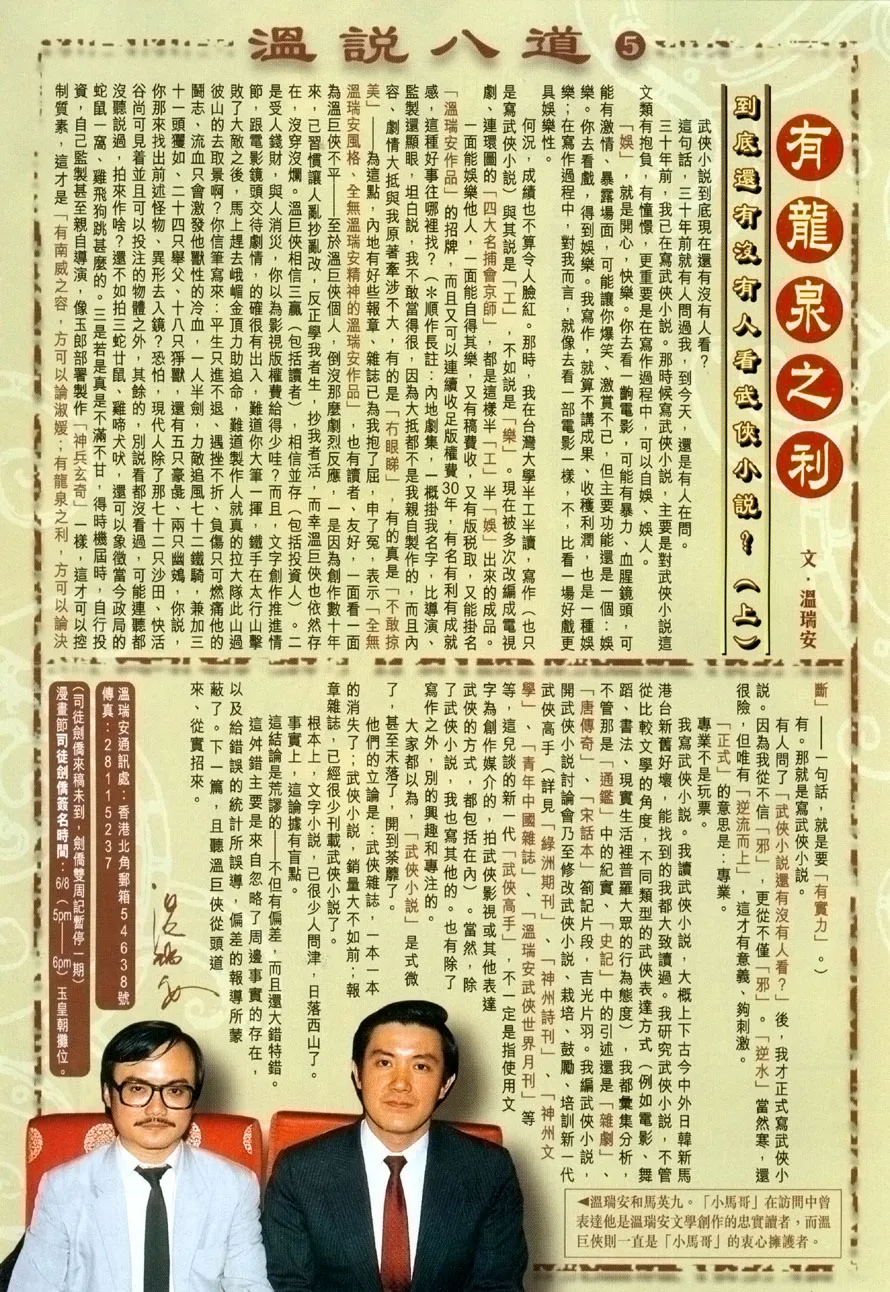 溫説八道 5
有龍泉之利
文．溫瑞安
到底還有沒有人看武俠小說？（上）
武俠小說到底現在還有沒有人看？
這句話，三十年前就有人問過我，到今天，還是有人在問。
三十年前，我已在寫武俠小說。那時候寫武俠小說，主要是對武俠小說這
文類有抱負，有憧憬，更重要是在寫作過程中，可以自娛、娛人。
「娛」，就是開心，快樂。你去看一齣電影，可能有暴力、血腥鏡頭，可
能有激情、暴露場面，可能讓你爆笑、激賞不已，但主要功能還是一個：娛
樂。你去看戲，得到娛樂。我寫作，就算不講成果、收穫利潤，也是一種娛
樂；在寫作過程中，對我而言，就像去看一部電影一樣，不，比看一場好戲更
具娛樂性。
何況，成績也不算令人臉紅。那時，我在台灣大學半工半讀，寫作（也只
是寫武俠小說）與其說是「工」，不如說是「樂」。現在被多次改編成電視
劇、連環圖的「四大名捕會京師」，都是這樣半「工」半「娛」出來的成品。
一面能娛樂他人，一面能自得其樂，又有稿費收，又有版稅取，又能掛名
「溫瑞安作品」的招牌，而且又可以連續收足版權費30年，有名有利有成就
感，這種好事往哪裡找？（＊順作長註：內地劇集，一概掛我名字，比導演、
監製還顯眼，坦白說，我不敢當得很，因為大抵都不是我親自製作的，而且內
容、劇情大抵與我原著牽涉不大，有的是「冇眼睇」，有的真是「不敢掠
美」——為這點，內地有好些報章、雜誌已為我抱了屈，申了冤，表示「全無
溫瑞安風格、全無溫瑞安精神的溫瑞安作品」，也有讀者、友好，一面看一面
為溫巨俠不平——至於溫巨俠個人，倒沒那麼劇烈反應，一是因為創作數十年
來，已習慣讓人亂抄亂改，反正學我者生，抄我者活，而幸溫巨俠也依然存
在，沒穿沒爛。溫巨俠相信三贏（包括讀者），相信並存（包括投資人）。二
是受人錢財，與人消災，你以為影視版權費給得少哇？而且，文字創作推進情
節，跟電影鏡頭交待劇情，的確很有出入，難道你大筆一揮，鐵手在太行山擊
敗了大敵之後，馬上趕去峨嵋金頂力助追命，難道製作人就真的拉大隊此山過
彼山的去取景啊？你信筆寫來：平生只進不退、遇挫不折、負傷只可燃痛他的
鬭志、流血只會激發他獸性的冷血，一人半劍，力敵追風七十二鐵騎，兼加三
十一頭玃如、二十四只舉父、十八只猙獸，還有五只豪彘、兩只幽鴳，你說，
你那來找出前述怪物、異形去入鏡？恐怕，現代人除了那七十二只沙田、快活
谷尚可見着並且可以投注的物體之外，其餘的，別說看都沒看過，可能連聽都
沒聽說過，拍來作啥？還不如拍三蛇廿鼠、雞啼犬吠，還可以象徵當今政局的
蛇鼠一窩、雞飛狗跳甚麼的。三是若是真是不滿不甘，得時機屆時，自行投
資，自己監製甚至親自導演，像玉郎部署製作「神兵玄奇」一樣，這才可以控
制質素，這才是「有南威之容，方可以論淑媛；有龍泉之利，方可以論決
斷」——一句話，就是要「有實力」。）
有。那就是寫武俠小說。
有人問了「武俠小說還有沒有人看？」後，我才正式寫武俠小
說。因為我從不信「邪」，更從不僅「邪」。「逆水」當然寒，還
很險，但唯有「逆流而上」，這才有意義、夠刺激。
「正式」的意思是：專業。
專業不是玩票。
我寫武俠小說。我讀武俠小說，大概上下古今中外日韓新馬
港台新舊好壞，能找到的我都大致讀過。我研究武俠小說，不管
從比較文學的角度，不同類型的武俠表達方式（例如電影、舞
蹈、書法、現實生活裡普羅大眾的行為態度），我都彙集分析，
不管那是「通鑑」中的紀實、「史記」中的引述還是「雜劇」、
「唐傳奇」、「宋話本」箚記片段，吉光片羽。我編武俠小說，
開武俠小說討論會乃至修改武俠小說、栽培、鼓勵、培訓新一代
武俠高手（詳見「綠洲期刊」、「神州詩刊」、「神州文
學」、「青年中國雜誌」、「溫瑞安武俠世界月刊」等
等，這兒談的新一代「武俠高手」，不一定是指使用文
字為創作媒介的，拍武俠影視或其他表達
武俠的方式，都包括在內）。當然，除
了武俠小說，我也寫其他的。也有除了
寫作之外，別的興趣和專注的。
大家都以為，「武俠小說」是式微
了，甚至末落了，開到荼蘼了。
他們的立論是：武俠雜誌，一本一本
的消失了；武俠小說，銷量大不如前；報
章雜誌，已經很少刊載武俠小說了。
根本上，文字小說，已很少人問津，日落西山了。
事實上，這論據有盲點。
這結論是荒謬的——不但有偏差，而且還大錯特錯。
這舛錯主要是來自忽略了周邊事實的存在，
以及給錯誤的統計所誤導，偏差的報導所蒙
蔽了。下一篇，且聽溫巨俠從頭道
來、從實招來。
溫瑞安
溫瑞安通訊處：香港北角郵箱54638號
傳真：28115237
（司徒劍僑來稿未到，劍僑雙周記暫停一期）
漫畫節司徒劍僑簽名時間：6/8（5pm——6pm）玉皇朝攤位。
◀溫瑞安和馬英九。「小馬哥」在訪問中曾
表達他是溫瑞安文學創作的忠實讀者，而溫
巨俠則一直是「小馬哥」的衷心擁護者。